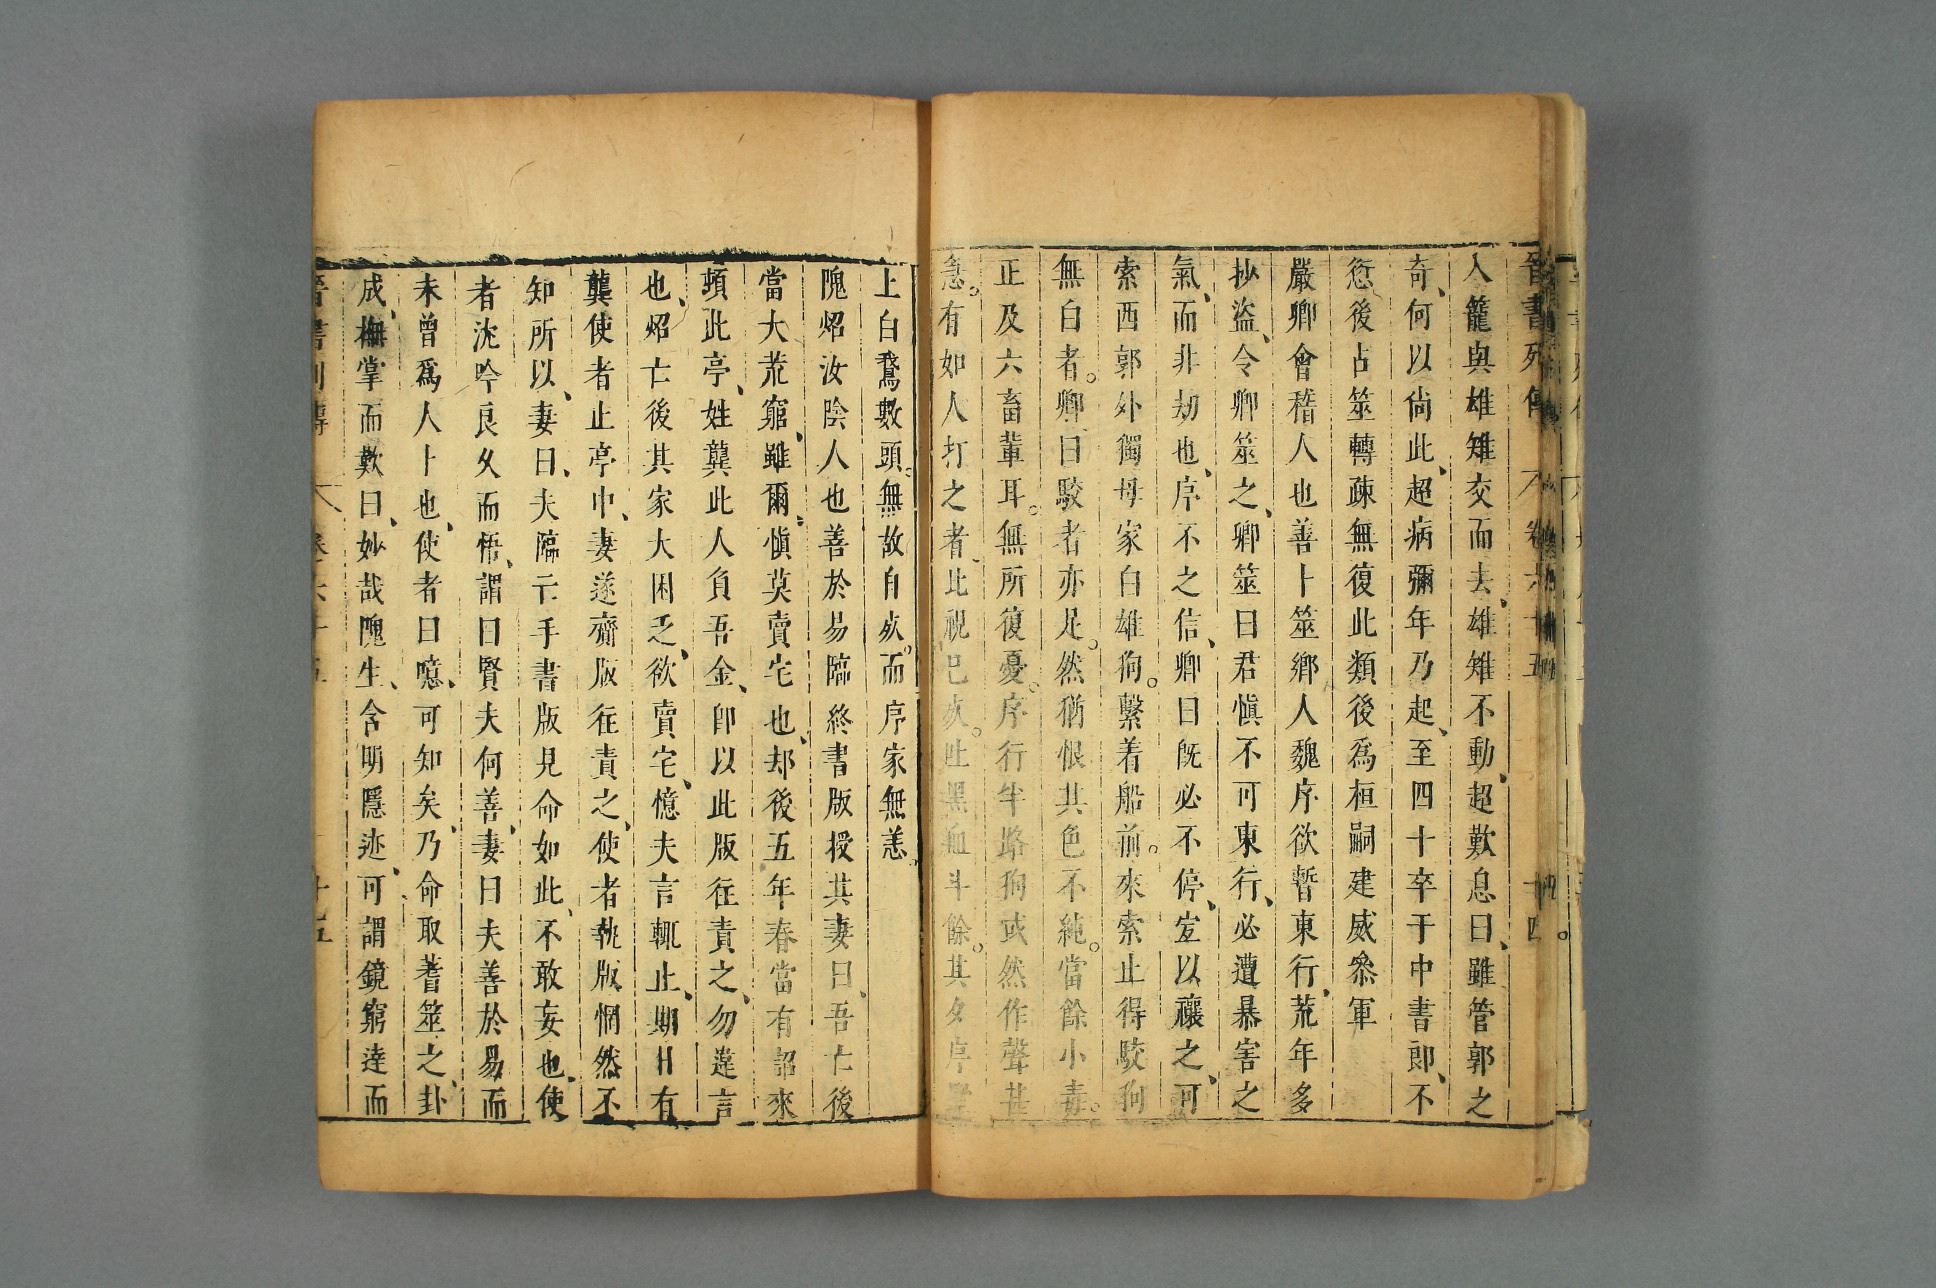 晉書列傳 卷六十五 十四
入籠與雄雉交而去雄雉不動超歎息曰雖管郭之
奇何以尙此超病彌年乃起至四十卒于中書郎不
愆後占筮轉疎無復此類後爲桓嗣建威叅軍
嚴卿會稽人也善卜筮鄉人魏序欲暫東行荒年多
抄盜令卿筮之卿筮曰君愼不可東行必遭暴害之
氣而非劫也序不之信卿曰旣必不停宐以禳之可
索西郭外獨母家白雄狗繫着船前來索止得駮狗
無白者卿曰駮者亦足然猶恨其色不純當餘小毒
正及六畜輩耳無所復憂序行半路狗或然作聲甚
急有如人打之者比視已死吐黑血斗餘其夕序墅
上白鵞數頭無故自死而序家無恙
隗炤汝陰人也善於易臨終書版授其妻曰吾亡後
當大荒窮雖爾愼莫賣宅也却後五年春當有詔來
頓此亭姓龔此人負吾金卽以此版往責之勿違言
也炤亡後其家大困乏欲賣宅憶夫言輒止期日有
龔使者止亭中妻遂齎版往責之使者執版惘然不
知所以妻曰夫臨亡手書版見命如此不敢妄也使
者沈吟良久而悟謂曰賢夫何善妻曰夫善於易而
未曾爲人卜也使者曰噫可知矣乃命取蓍筮之卦
成撫掌而歎曰妙哉隗生含明隱迹可謂鏡窮達而
晉書列傳 卷六十五 十五